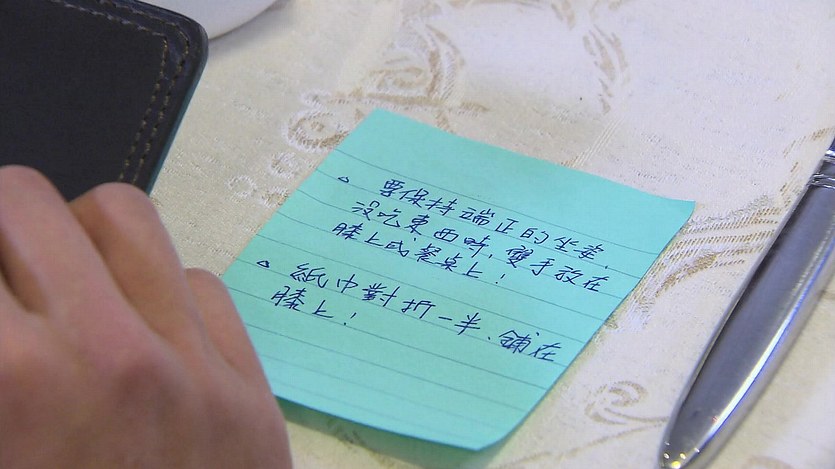 △ 要保持端正的坐姿、
沒吃東西時,雙手放在
膝上或餐桌上!
△ 紙巾對折一半、鋪在
膝上!